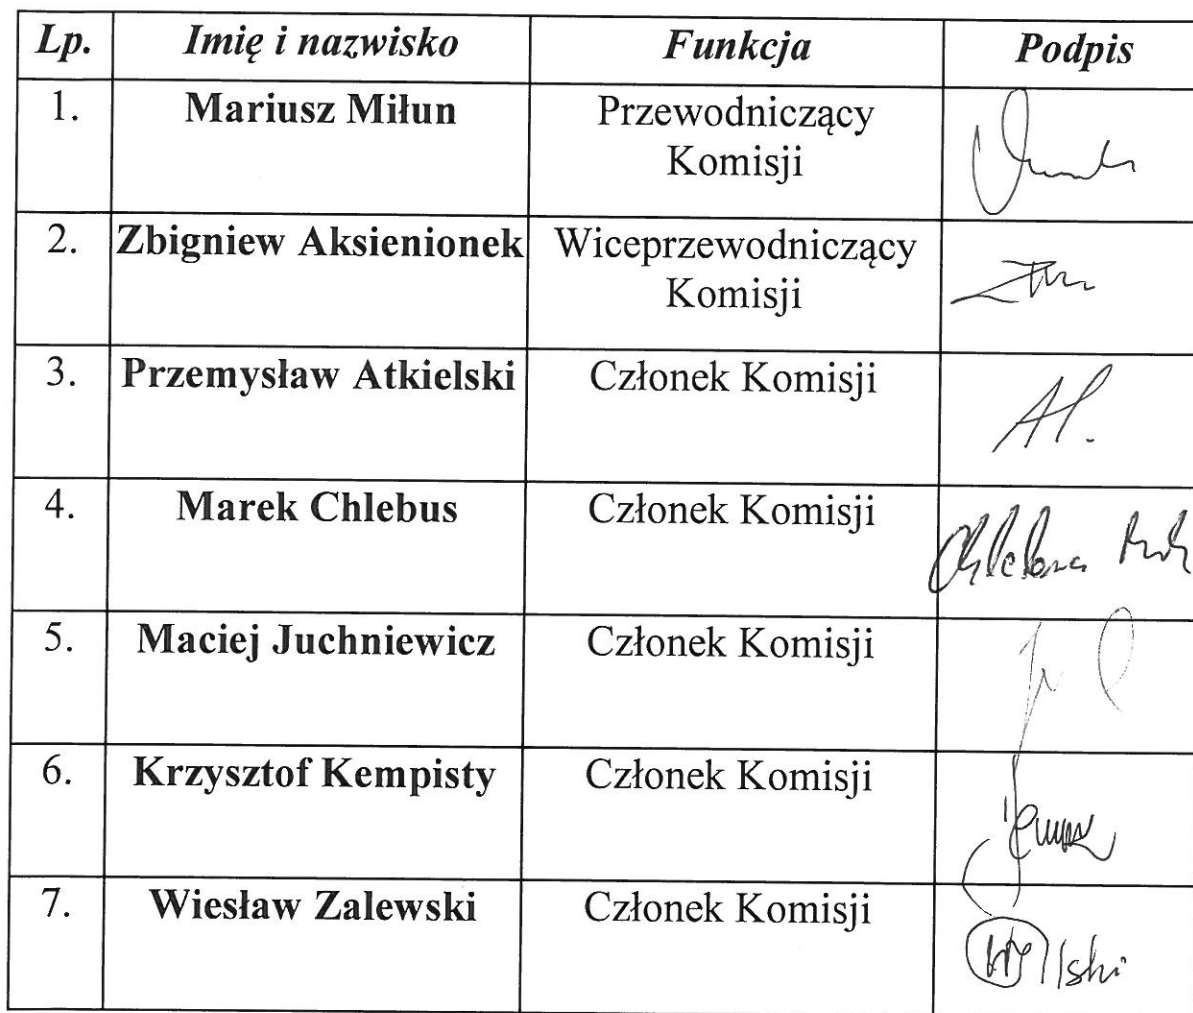 Lp. Imię i nazwisko Funkcja Podpis
1. Mariusz Miłun Przewodniczący
Komisji
2. Zbigniew Aksienionek Wiceprzewodniczący
Komisji
3. Przemysław Atkielski Członek Komisji
4. Marek Chlebus Członek Komisji
5. Maciej Juchniewicz Członek Komisji
6. Krzysztof Kempisty Członek Komisji
7. Wiesław Zalewski Członek Komisji